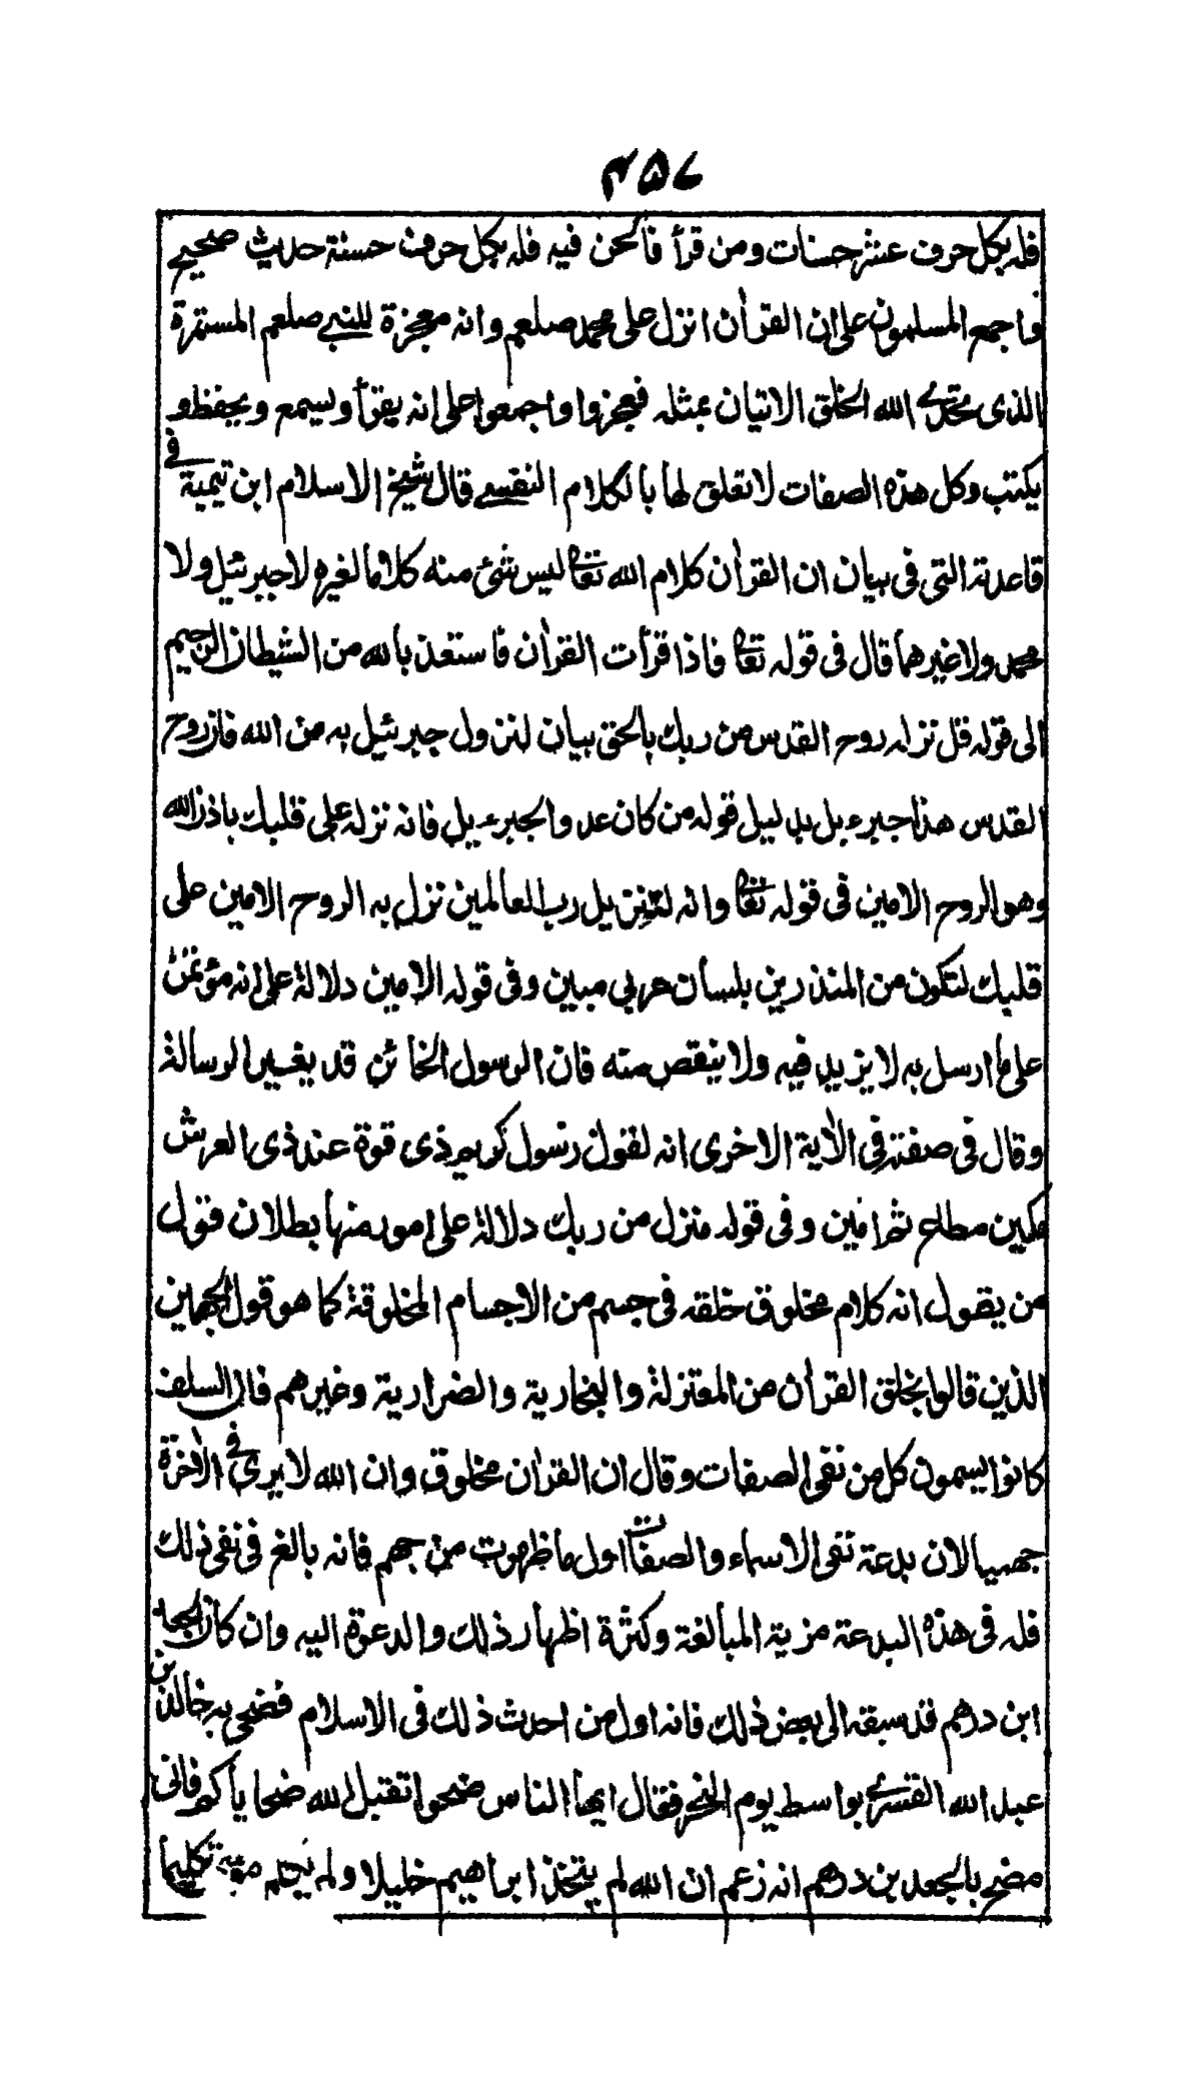 ۴۵۷
فله بكل حرف عشر حسنات ومن قرأ فألحن فيه فله بكل حرف حسنة حديث صحيح
واجمع المسلمون على ان القرأن انزل على محمد صلعم وانه معجزة للنبي صلعم المستمرة
الذى تحدى الله الخلق الاتيان بمثله فعجزوا واجمعوا على انه يقرأ ويسمع ويحفظ و
يكتب وكل هذه الصفات لا تعلق لها بالكلام النفسي قال شيخ الاسلام ابن تيمية فى
قاعدته التى فى بيان ان القرأن كلام الله تعالى ليس شئ منه كلاما لغيره لا جبرئيل ولا
محمد ولا غيرهما قال فى قوله تعالى فاذا قرأت القرأن فاستعذ بالله من الشيطان الرجيم
الى قوله قل نزله روح القدس من ربك بالحق بيان لنزول جبرئيل به من الله فان روح
القدس هذا جبرءيل بدليل قوله من كان عدوا لجبرءيل فانه نزله على قلبك باذن الله
وهو الروح الامين فى قوله تعالى وانه لتنزيل رب العالمين نزل به الروح الامين على
قلبك لتكون من المنذرين بلسان عربي مبين وفى قوله الامين دلالة على انه مؤتمن
على ما ارسل به لا يزيد فيه ولا ينقص منه فان الرسول الخائن قد يغير الرسالة
وقال فى صفته فى الأية الاخرى انه لقول رسول كريم ذى قوة عند ذى العرش
مكين مطاع ثم امين وفى قوله منزل من ربك دلالة على امور منها بطلان قول
من يقول انه كلام مخلوق خلقه فى جسم من الاجسام المخلوقة كما هو قول الجهمين
الذين قالوا بخلق القرأن من المعتزلة والبخارية والضرارية وغيرهم فان السلف
كانوا يسمون كل من نفى الصفات وقال ان القرأن مخلوق وان الله لا يرى فى الأخرة
جهميا لان بدعة نفى الاسماء والصفات اول ما ظهرت من جهم فانه بالغ فى نفى ذلك
فله فى هذه البدعة مزية المبالغة وكثرة اظهار ذلك والدعوة اليه وان كان الجعد
ابن درهم قد سبقه الى بعض ذلك فانه اول من احدث ذلك فى الاسلام فضحى به خالد بن
عبد الله القسري بواسط يوم النحر فقال ايها الناس ضحوا تقبل الله ضحاياكم فانى
مضح بالجعد بن درهم انه زعم ان الله لم يتخذ ابراهيم خليلا ولم يكلم موسى تكليما